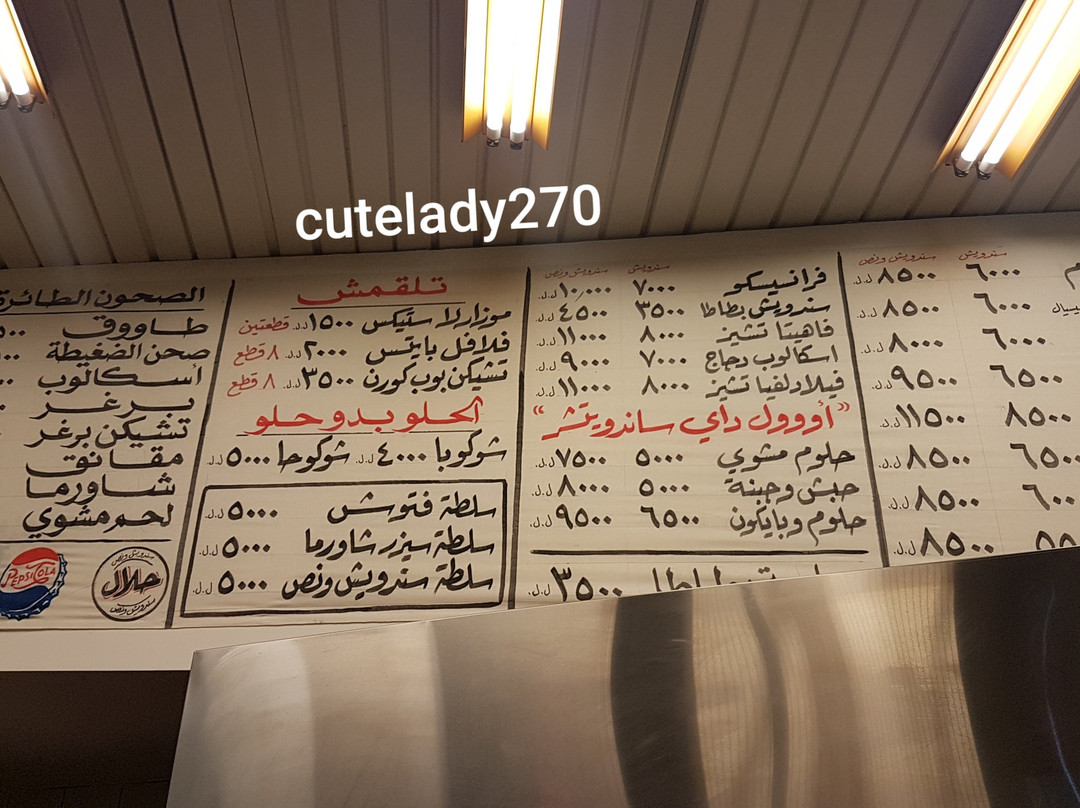 cutelady270
سندويش سندويش ونص
٦٠٠٠ ٨٥٠٠ ل.ل.
٦٠٠٠ ٨٥٠٠ ل.ل.
٦٠٠٠ ٨٠٠٠ ل.ل.
٦٥٠٠ ٩٥٠٠ ل.ل.
٨٥٠٠ ١١٥٠٠ ل.ل.
٦٥٠٠ ٨٥٠٠ ل.ل.
٨٥٠٠ ل.ل.
٨٥٠٠ ل.ل.
سندويش سندويش ونص
فرانسيسكو ٧٠٠٠ ١٠,٠٠٠ ل.ل.
سندويش بطاطا ٣٥٠٠ ٤٥٠٠ ل.ل.
فاهيتا تشيز ٨٠٠٠ ١١٠٠٠ ل.ل.
اسكالوب دجاج ٧٠٠٠ ٩٠٠٠ ل.ل.
فيلادلفيا تشيز ٨٠٠٠ ١١٠٠٠ ل.ل.
"أووول داي ساندويتشز"
حلوم مشوي ٥٠٠٠ ٧٥٠٠ ل.ل.
حبش وجبنة ٥٠٠٠ ٨٠٠٠ ل.ل.
حلوم وبايكون ٦٥٠٠ ٩٥٠٠ ل.ل.
٣٥٠٠ ل.ل.
تلقمش
موزاريلا ستيكس ١٥٠٠ ل.ل. قطعتين
فلافل بايتس ٢٠٠٠ ل.ل. ٨ قطع
تشيكن بوب كورن ٣٥٠٠ ل.ل. ٨ قطع
الحلو بدو حلو
شوكوبا ٤٠٠٠ ل.ل. شوكوحا ٥٠٠٠ ل.ل.
سلطة فتوش ٥٠٠٠ ل.ل.
سلطة سيزر شاورما ٥٠٠٠ ل.ل.
سلطة سندويش ونص ٥٠٠٠ ل.ل.
الصحون الطائرة
طاووق
صحن الضغيطة
أسكالوب
برغر
تشيكن برغر
مقانق
شاورما
لحم مشوي
سندويش ونص
حلال
سندويش ونص
PEPSI COLA